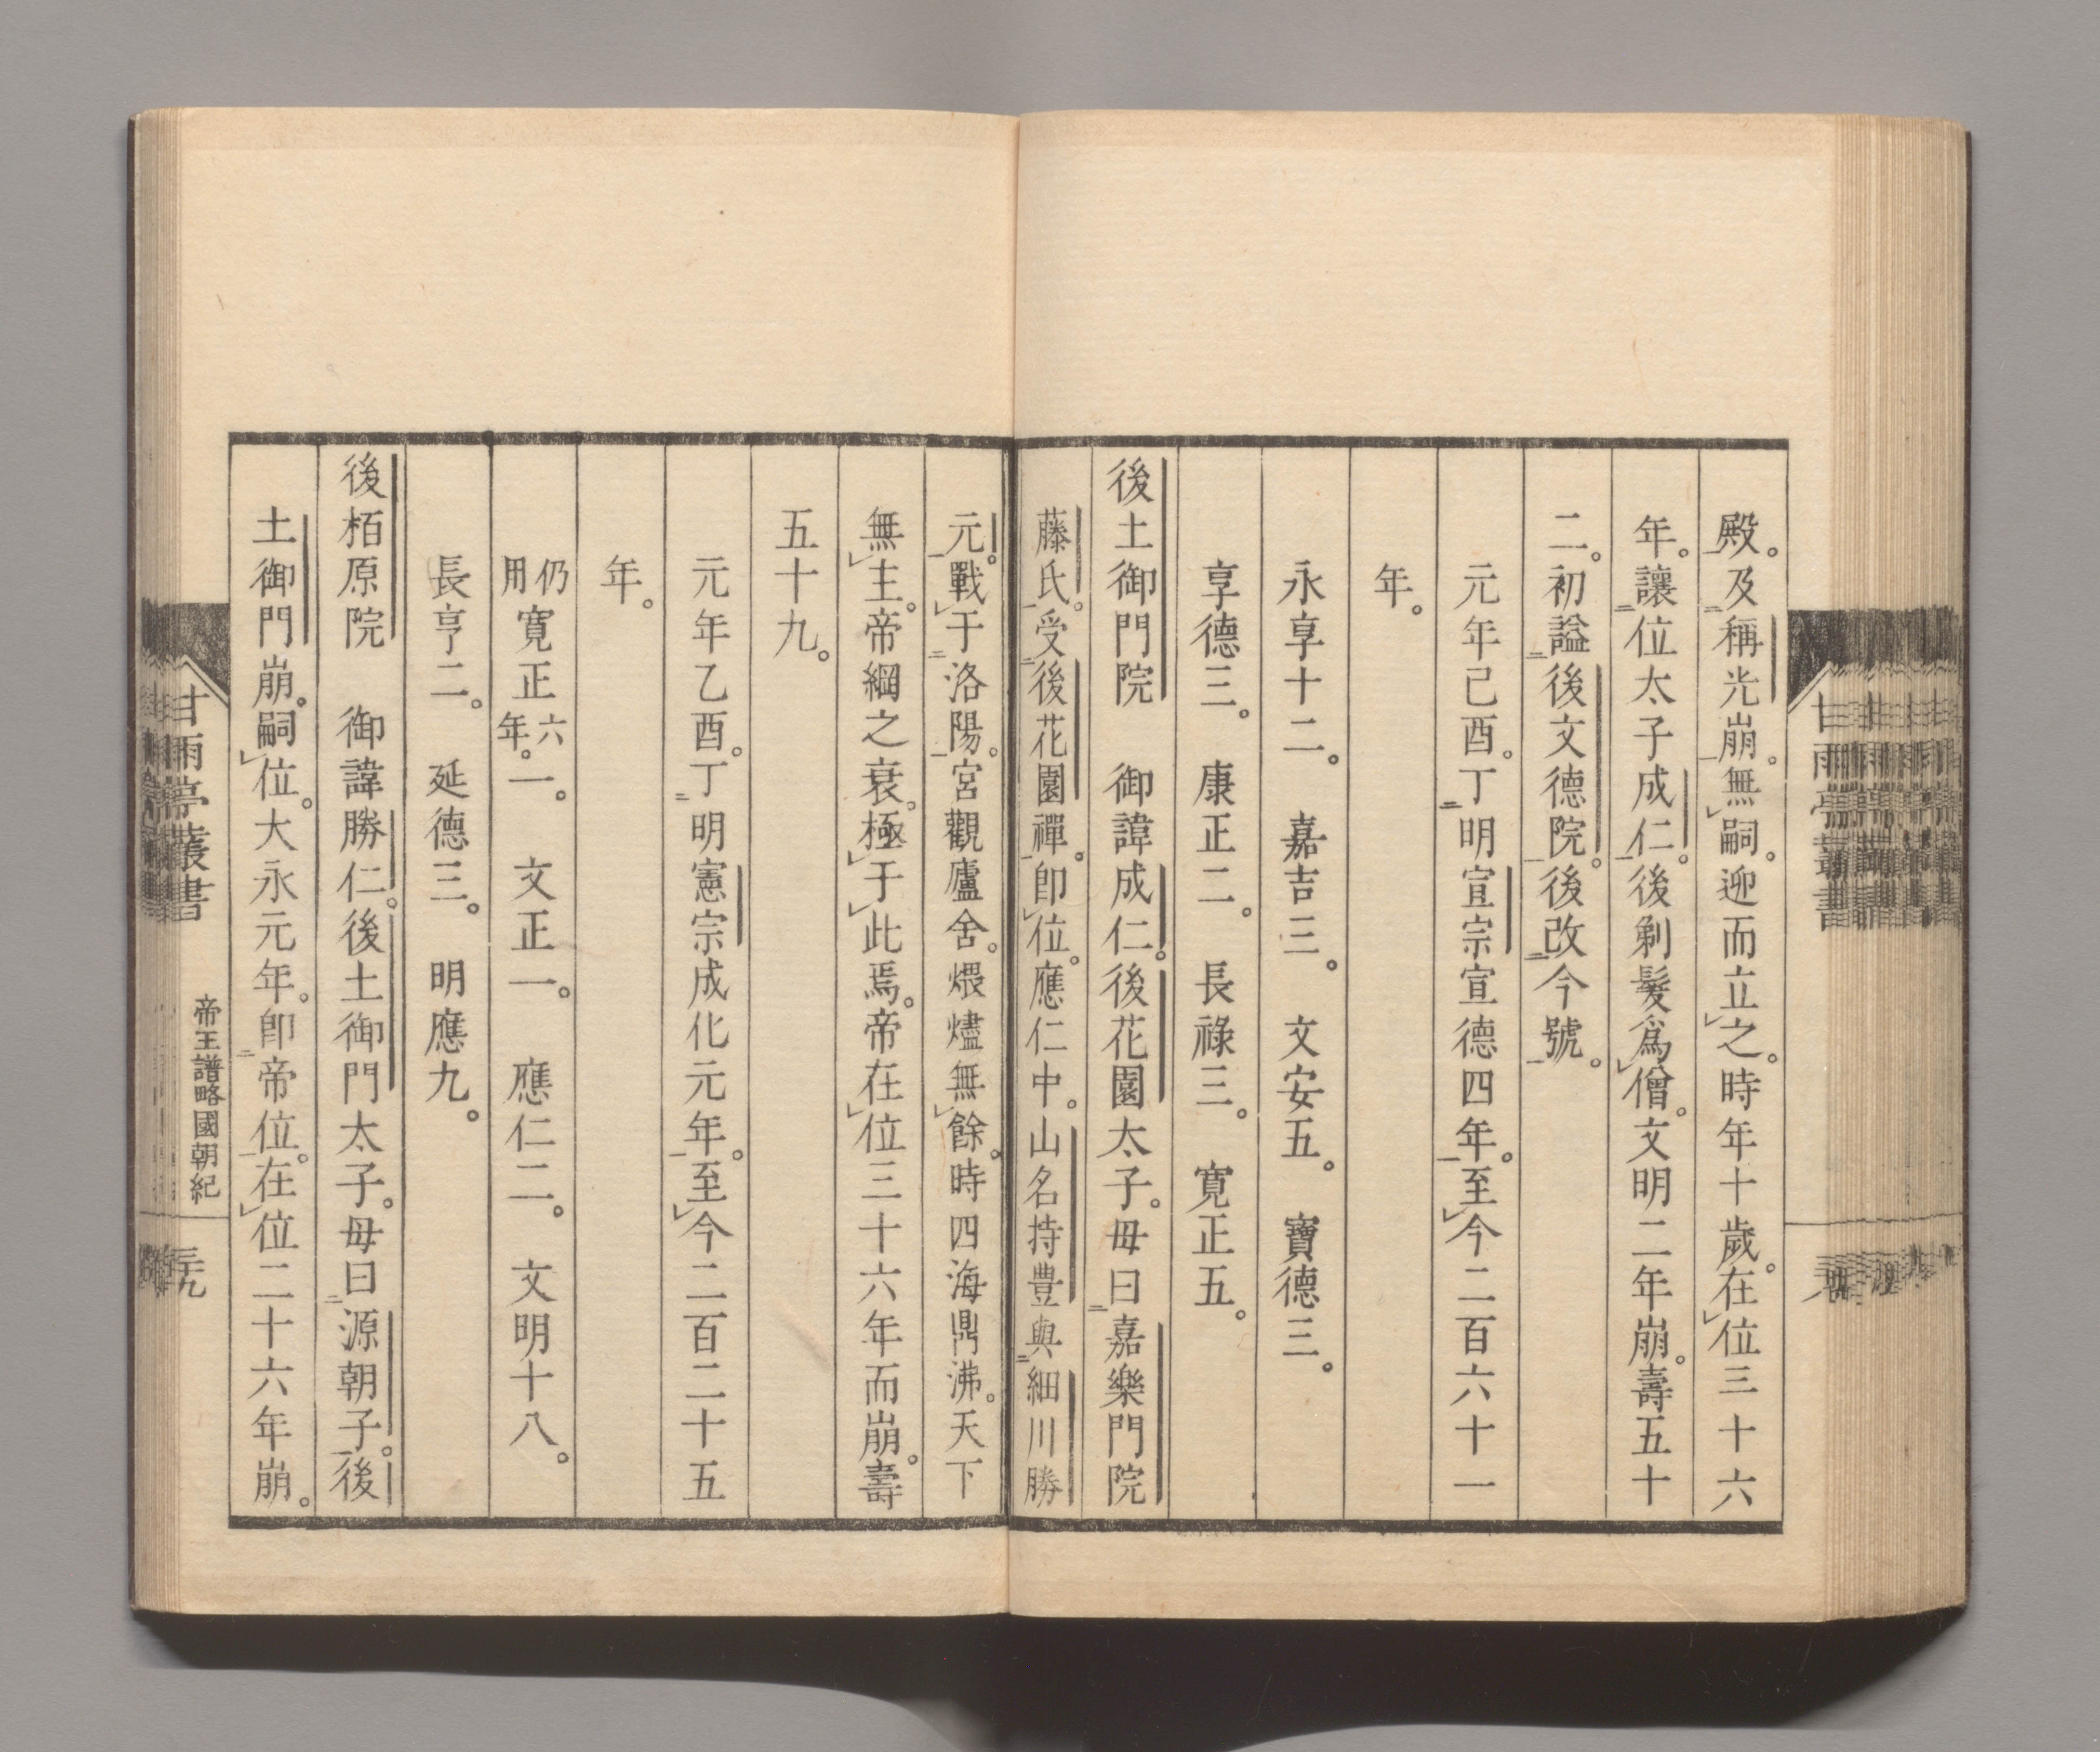 殿。及稱光崩。無嗣。迎而立之。時年十歲。在位三十六
年。讓位太子成仁。後剃髮爲僧。文明二年崩。壽五十
二。初謚後文德院。後改今號。
元年己酉。丁明宣宗宣德四年。至今二百六十一
年。
永享十二。　嘉吉三。　文安五。　寶德三。
享德三。　康正二。　長祿三。　寬正五。
後土御門院　御諱成仁。後花園太子。母曰嘉樂門院
藤氏。受後花園禪。卽位。應仁中。山名持豊與細川勝
元。戰于洛陽。宮觀廬舍。煨燼無餘。時四海鼎沸。天下
無主。帝綱之衰。極于此焉。帝在位三十六年而崩。壽
五十九。
元年乙酉。丁明憲宗成化元年。至今二百二十五
年。
仍用寬正六年。一。　文正一。　應仁二。　文明十八。
長亨二。　延德三。　明應九。
後栢原院　御諱勝仁。後土御門太子。母曰源朝子。後
土御門崩。嗣位。大永元年。卽帝位。在位二十六年崩。
甘雨亭叢書
帝王譜略國朝紀
三十九
甘雨亭叢書